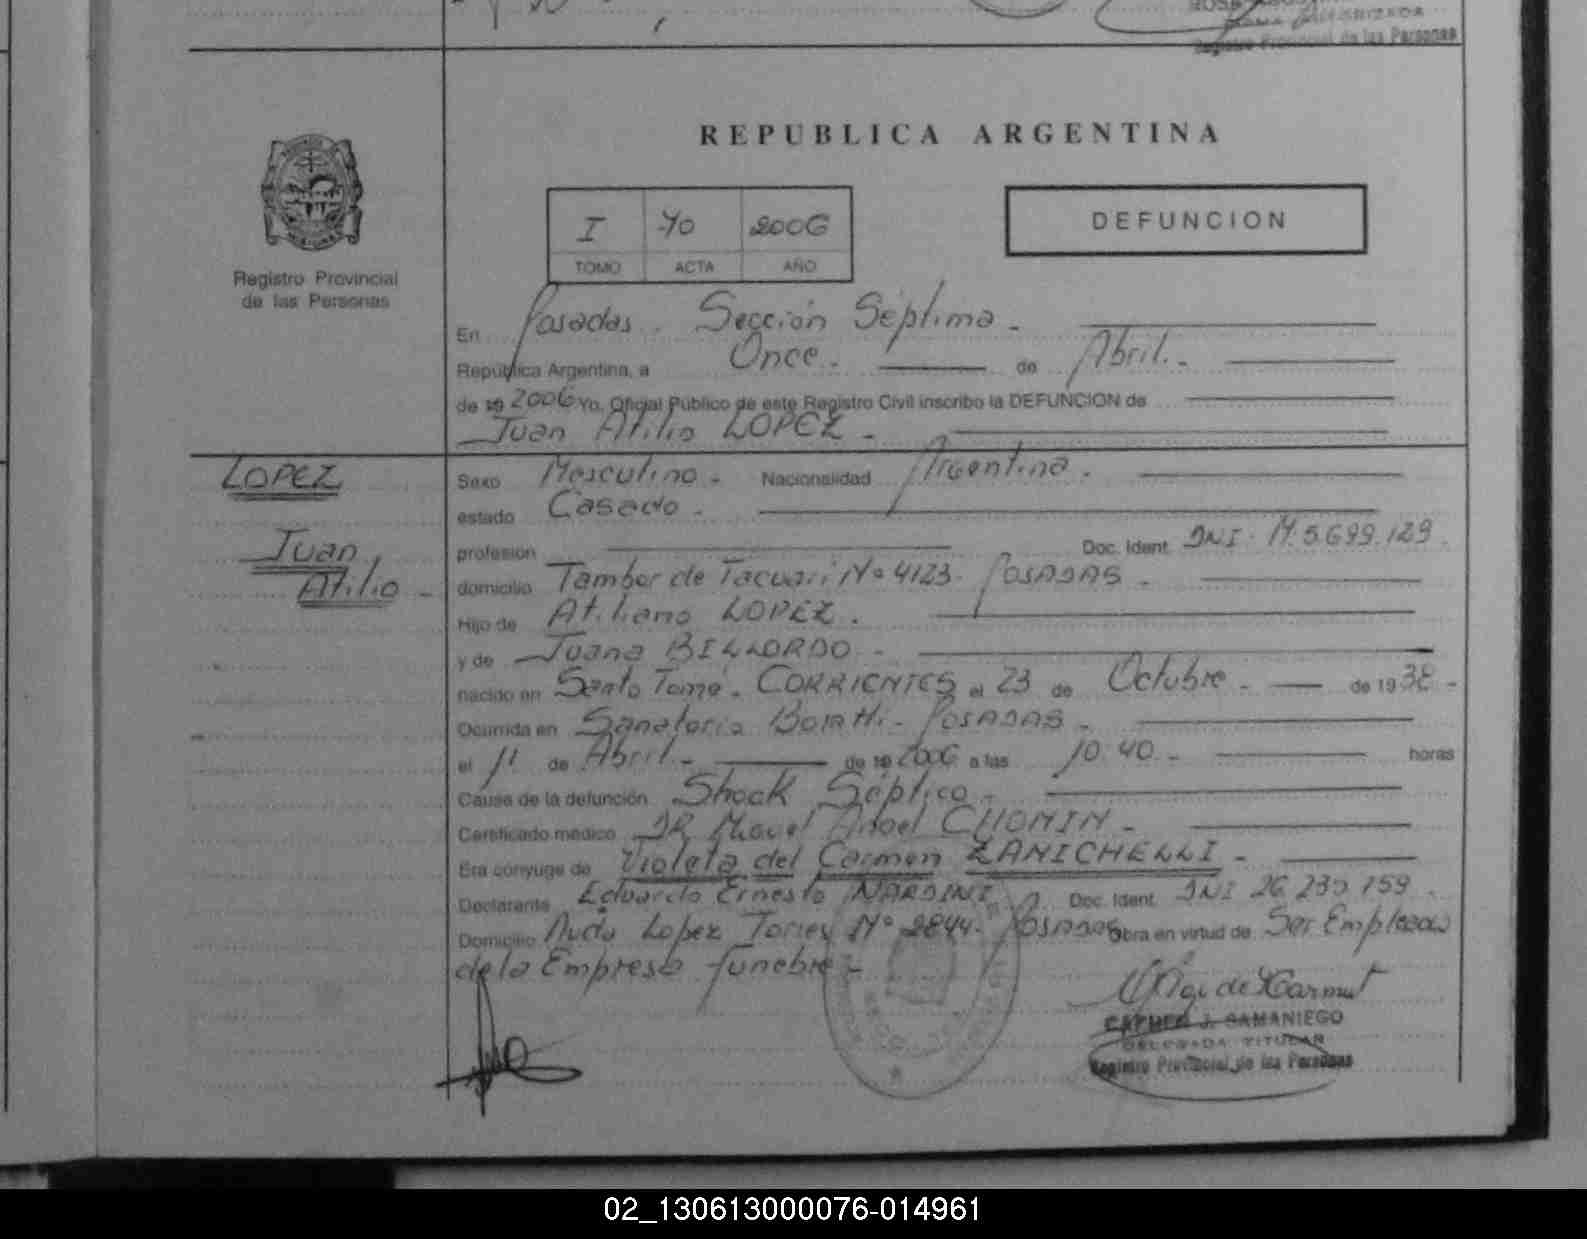 Registro Provincial de las Personas
REPUBLICA ARGENTINA
I 40 2006
TOMO ACTA AÑO
DEFUNCION
Registro Provincial
de las Personas
En Posadas. Sección Séptima -
República Argentina, a Once - de Abril. -
de 19 2006 Yo, Oficial Público de este Registro Civil inscribo la DEFUNCION de
Juan Atilio LOPEZ -
LOPEZ
Juan
Atilio -
Sexo Masculino - Nacionalidad Argentina.
estado Casado -
profesión Doc. Ident. DNI. M. 5.699.129.
domicilio Tambor de Tacuarí Nº 4123. POSADAS -
Hijo de Atiliano LOPEZ.
y de Juana BILLORDO -
nacido en Santo Tomé - CORRIENTES el 23 de Octubre - de 1938 -
Ocurrida en Sanatorio Boratti - POSADAS -
el 11 de Abril - de 19 2006 a las 10.40 - horas
Causa de la defunción Shock Séptico -
Certificado médico DR Miguel Angel CHOMIN -
Era cónyuge de Violeta del Carmen ZANICHELLI -
Declarante Eduardo Ernesto NARDINI Doc. Ident. DNI 26.230.759.
Domicilio Avda Lopez Torres Nº 2844. POSADAS Obra en virtud de Ser Empleado
de la Empresa fúnebre -
CARMEN J. SAMANIEGO
DELEGADA TITULAR
Registro Provincial de las Personas
02_130613000076-014961